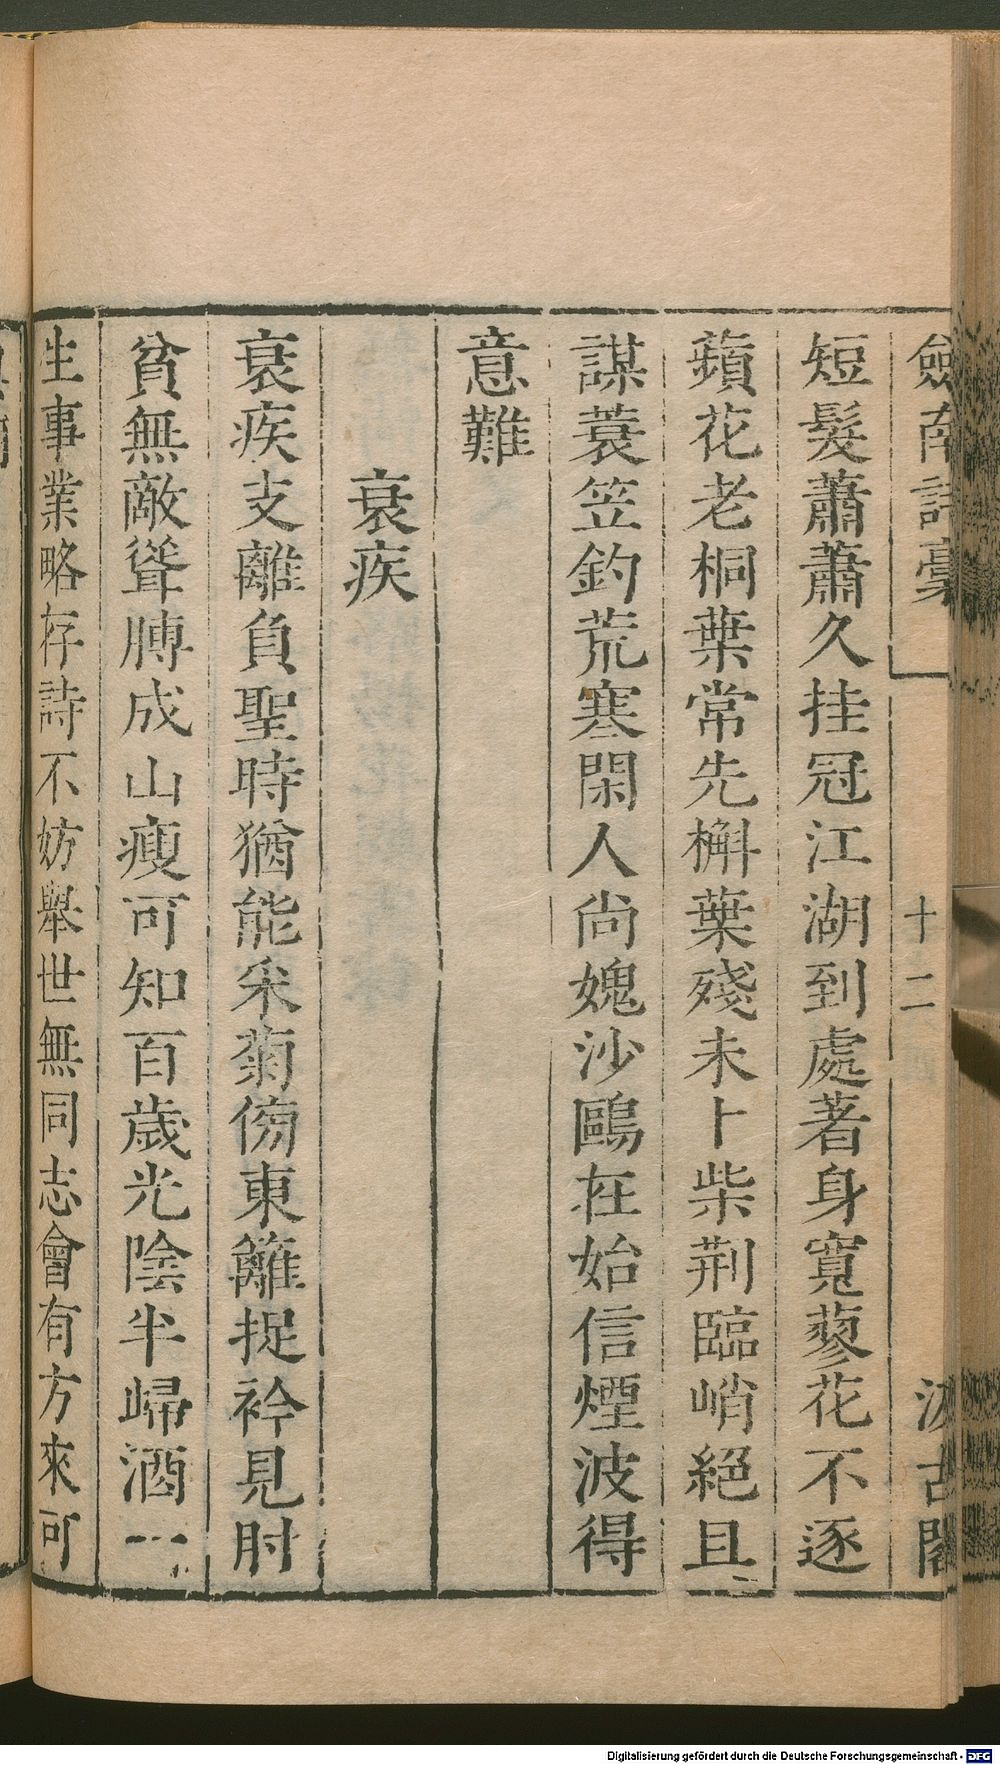 劔南詩稾 十二 汲古閣
短髮蕭蕭久挂冠江湖到處著身寬蓼花不逐
蘋花老桐葉常先槲葉殘未卜柴荆臨峭絕且
謀蓑笠釣荒寒閑人尚媿沙鷗在始信煙波得
意難
衰疾
衰疾支離負聖時猶能采菊傍東籬捉衿見肘
貧無敵聳膊成山瘦可知百歲光陰半歸酒一
生事業略存詩不妨舉世無同志會有方來可
Digitalisierung gefördert durch die Deutsche Forschungsgemeinschaft - DFG